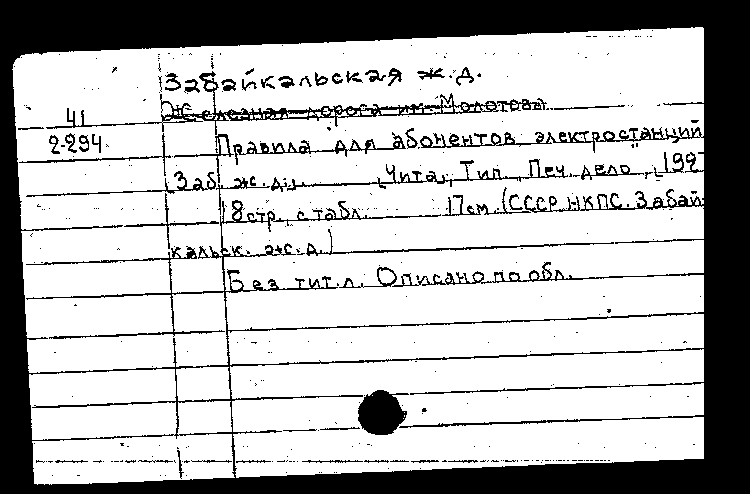 Забайкальская ж.д.
41
Железная дорога им. Молотова
2-294
Правила для абонентов электростанций
[Заб. ж.д.]. [Чита], Тип. "Печ. дело", [192
18 стр. с табл. 17 см. (СССР НКПС. Забай-
кальск. ж.д.)
Без тит.л. Описано по обл.